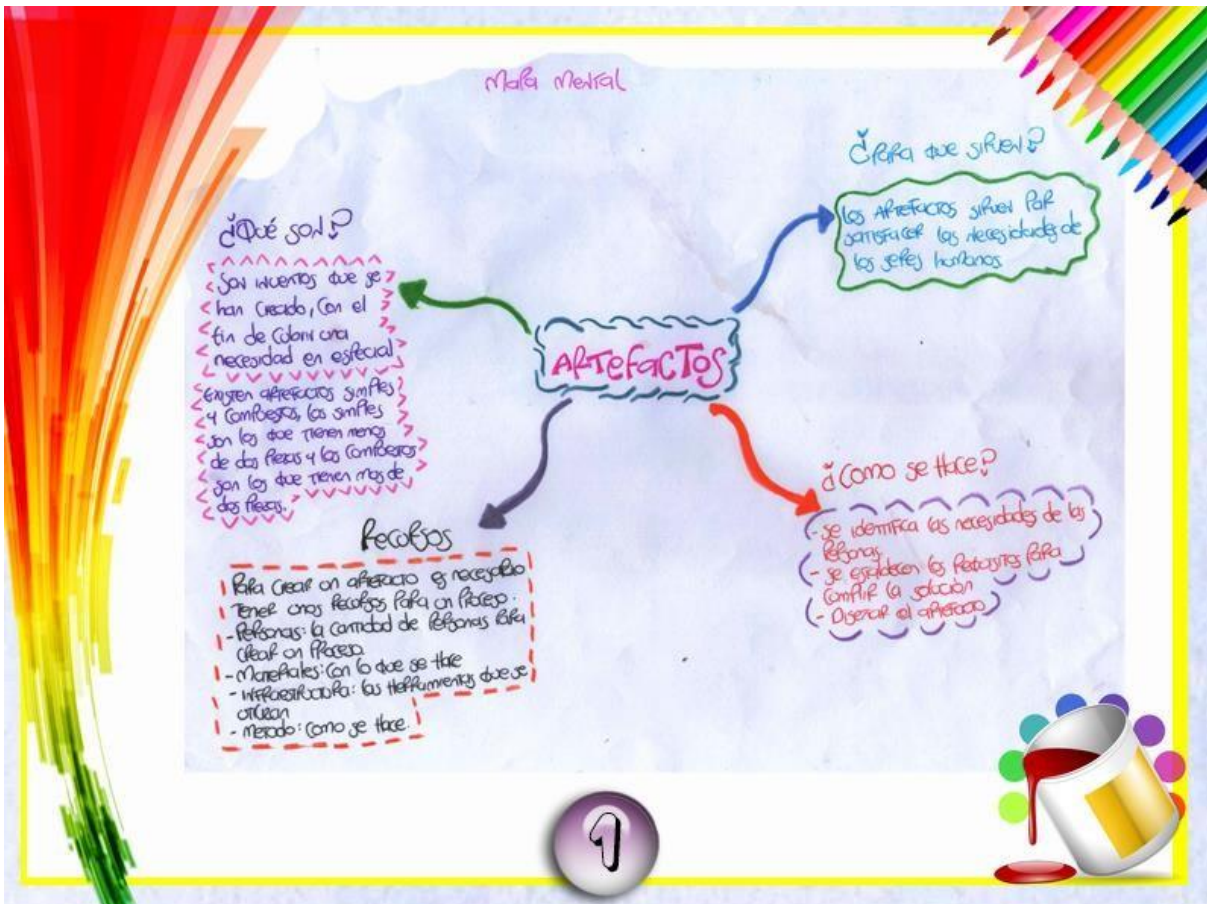 Mapa Mental
¿Qué son?
Son inventos que se
han creado, con el
fin de cubrir una
necesidad en especial
Existen artefactos simples
y compuestos, los simples
son los que tienen menos
de dos piezas y los compuestos
son los que tienen mas de
dos piezas.
¿Para que sirven?
Los artefactos sirven par
satisfacer las necesidades de
los seres humanos
ARTEFACTOS
¿Como se Hace?
- se identifica las necesidades de las
Personas
- se establecen los Requisitos para
cumplir la solución
- Diseñar el artefacto
Recursos
Para crear un artefacto es necesario
tener unos recursos para un proceso.
- Personas: la cantidad de Personas para
crear un Proceso
- Materiales: con lo que se Hace
- infraestructura: las Herramientas que se
utilizan
- Metodo: como se Hace.
1